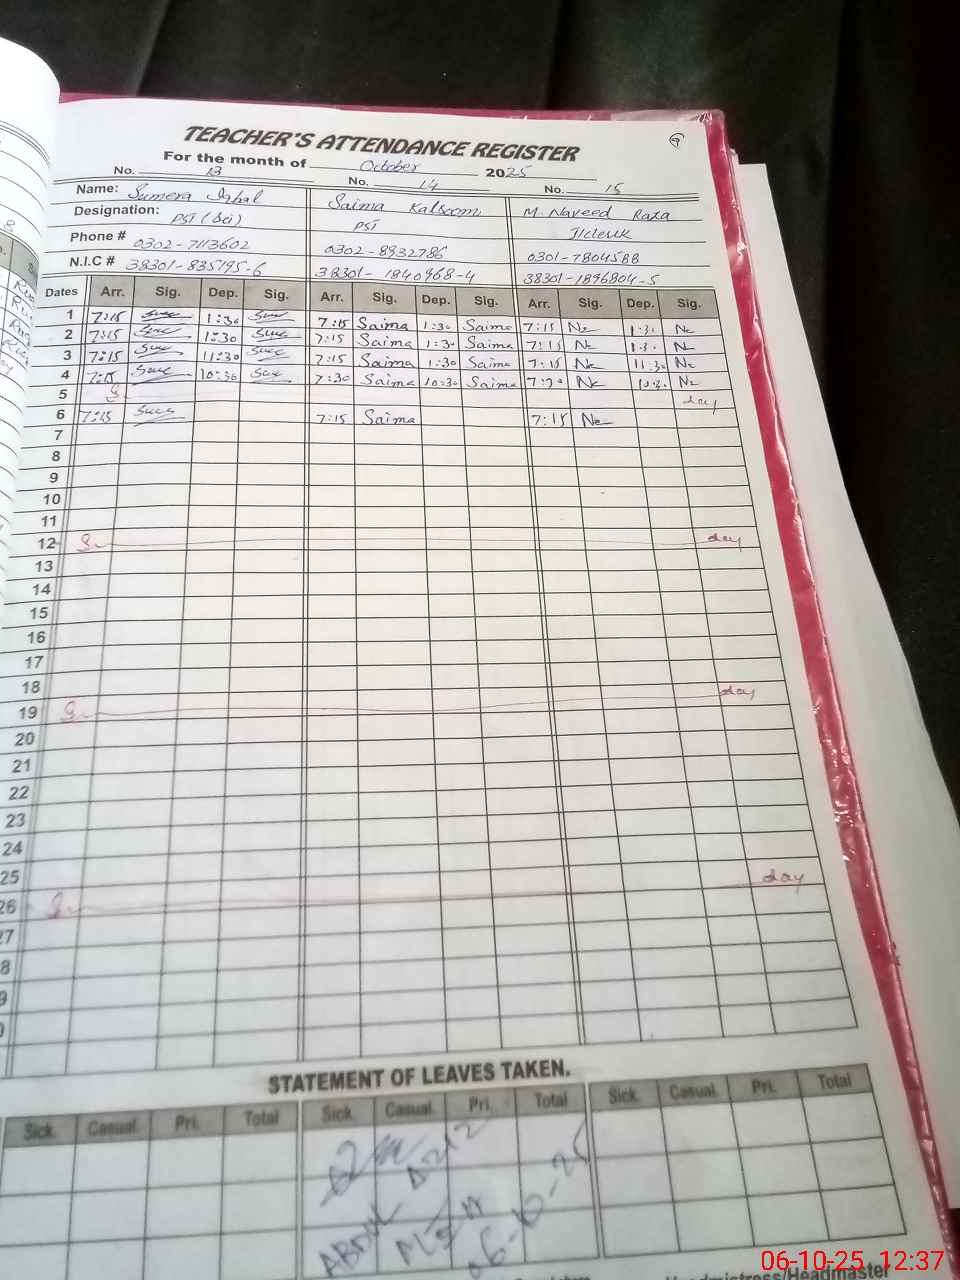 TEACHER'S ATTENDANCE REGISTER
For the month of October 2025
No. 13 No. 14 No. 15
Name: Sumera Iqbal Saima Kalsoom M. Naveed Raza
Designation: PST (Sci) PST
Phone # 0302-7113602 0302-8932786 0301-7804588
N.I.C # 38301-835195-6 38301-1840968-4 38301-1896804-5
Dates Arr. Sig. Dep. Sig. Arr. Sig. Dep. Sig. Arr. Sig. Dep. Sig.
1 7:15 1:30 7:15 Saima 1:30 Saima 7:15 Ne 1:30 Ne
2 7:15 1:30 7:15 Saima 1:30 Saima 7:15 Ne 1:30 Ne
3 7:15 11:30 7:15 Saima 1:30 Saima 7:15 Ne 11:30 Ne
4 7:15 10:30 7:30 Saima 10:30 Saima 7:30 Ne 10:30 Ne
5 S day
6 7:15 7:15 Saima 7:15 Ne
7
8
9
10
11
12 S day
13
14
15
16
17
18
19 S day
20
21
22
23
24
25
26 S day
27
8
9
STATEMENT OF LEAVES TAKEN.
Sick. Casual. Pri. Total Sick. Casual. Pri. Total Sick. Casual. Pri. Total
06-10-25
06-10-25 12:37